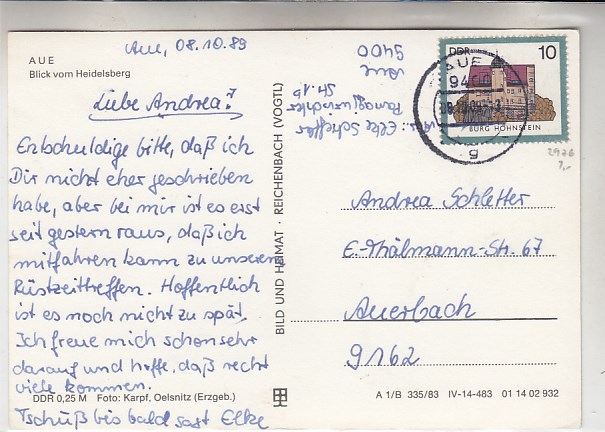 Aue, 08.10.89
AUE
Blick vom Heidelsberg
Liebe Andrea!
Entschuldige bitte, daß ich
Dir nicht eher geschrieben
habe, aber bei mir ist es erst
seit gestern raus, daß ich
mitfahren kann zu unseren
Rüstzeittreffen. Hoffentlich
ist es noch nicht zu spät.
Ich freue mich schon sehr
darauf und hoffe, daß recht
viele kommen.
Tschüß bis bald sagt Elke
DDR 0,25 M Foto: Karpf, Oelsnitz (Erzgeb.)
BILD UND HEIMAT · REICHENBACH (VOGTL)
Elke Scheffler
Str. 1b
Aue
9400
DDR 10
BURG HOHNSTEIN
AUE
9400
g
2976
Andrea Schletter
E.-Thälmann-Str. 67
Auerbach
9162
A 1/B 335/83 IV-14-483 01 14 02 932